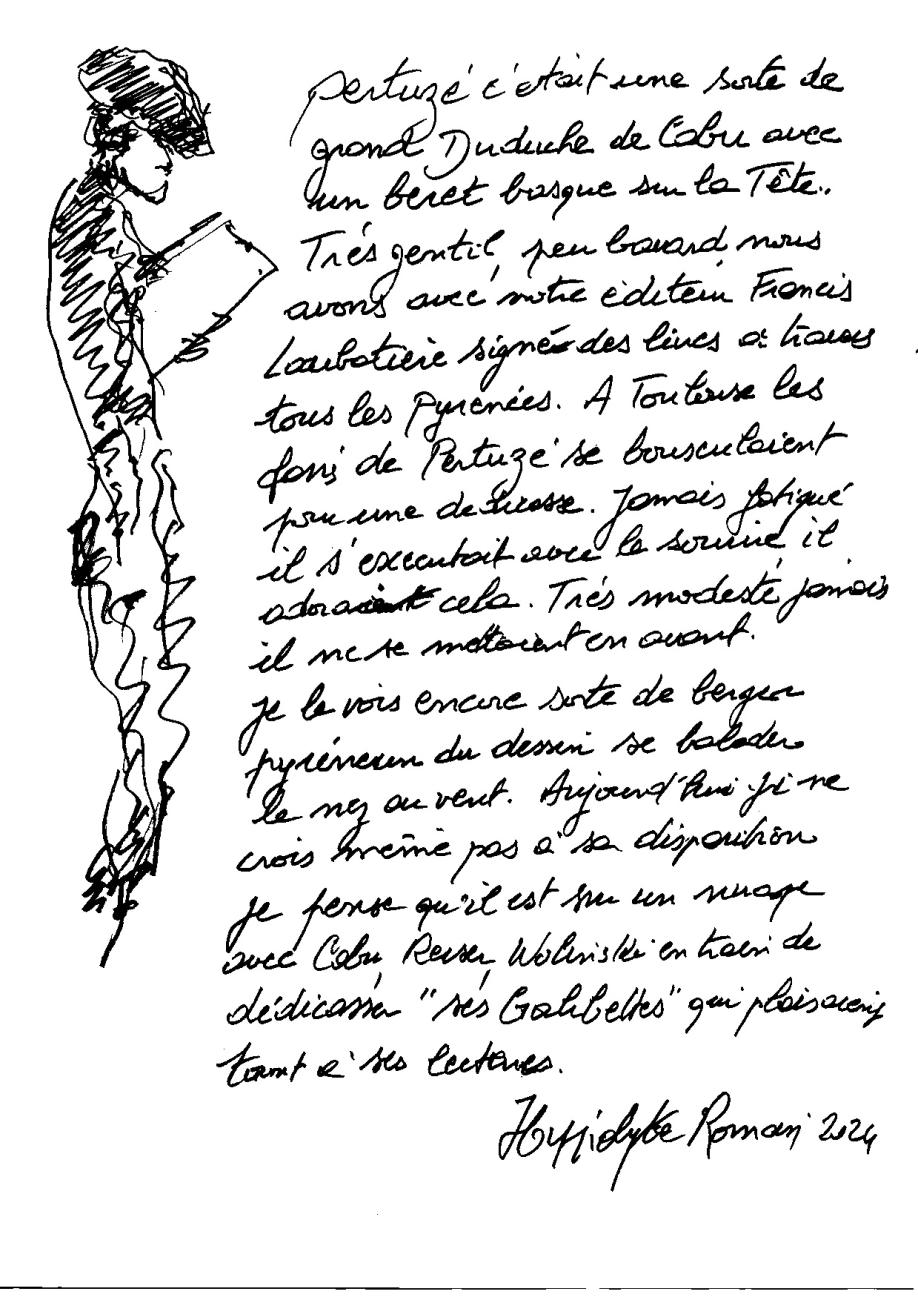 Pertuzé c'était une sorte de
grand Duduche de Cabu avec
un beret basque sur la Tête..
Trés gentil, peu bavard, nous
avons avec notre éditeur Francis
Loubatière signé des livres a travers
tous les Pyrenées. A Toulouse les
fans de Pertuzé se bousculaient
pour une dedicasse. Jamais fatigué
il s'executait avec le sourire il
adorait cela. Trés modeste jamais
il ne se mettait en avant.
je le vois encore sorte de berger
pyrénéen du dessin se balader
le nez au vent. Aujourd'hui je ne
crois même pas à sa disparition
je pense qu'il est sur un nuage
avec Cabu, Reiser, Wolinski en train de
dédicasser "ses Galibettes" qui plaisaient
tant a' ses lecteurs.
Hyppolyte Romain 2024